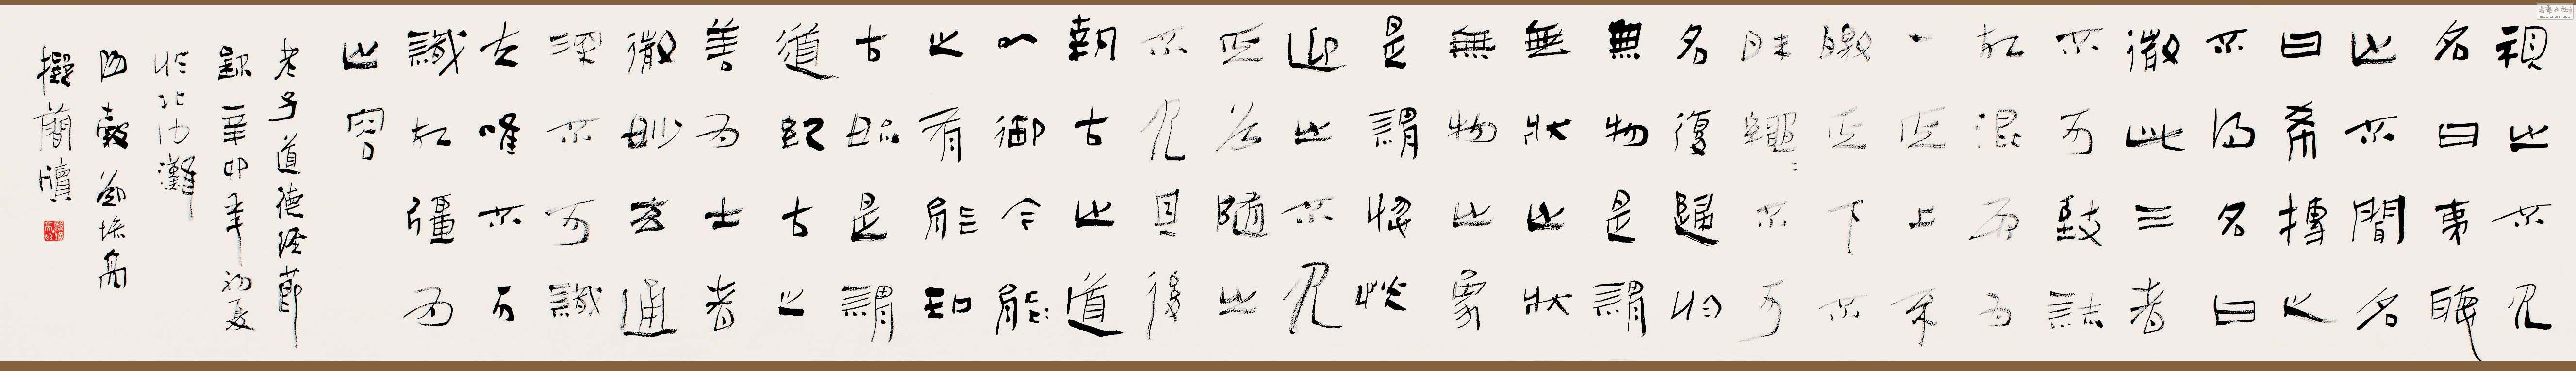 視之不見
名曰夷聽
之不聞名
曰希搏之
不得名曰
微此三者
不可致詰
故混而為
一其上不
皦其下不
昧繩〻不可
名復歸於
無物是謂
無狀之狀
無物之象
是謂惚恍
迎之不見
其首隨之
不見其後
執古之道
以御今能
之有能知
古始是謂
道紀古之
善為士者
微妙玄通
深不可識
夫唯不可
識故強為
之容
老子道德經節
錄辛卯年初夏
於北沙灘
擬簡牘